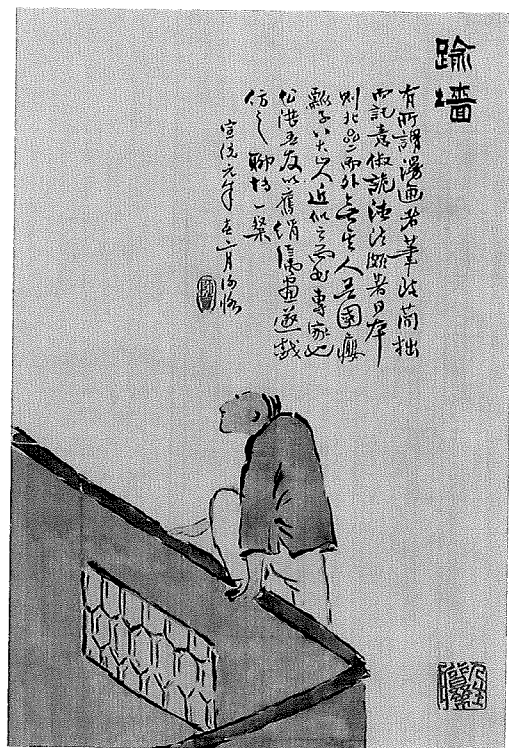 踰墻
有所謂漫畫者筆致簡拙
而託意俶詭涵法頗著日本
則北斎而外無其人吾國癭
瓢子八大山人近似之而非專家也
公湛吾友以舊綃屬畫遂戲
仿之聊博一粲
宣統元年春二月